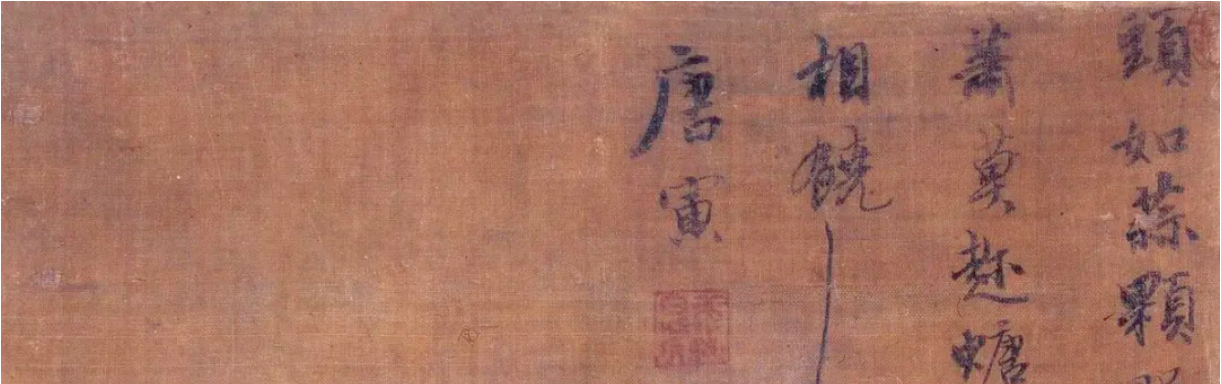 頭如蒜顆
蕭莫趂螗
相饒
唐寅